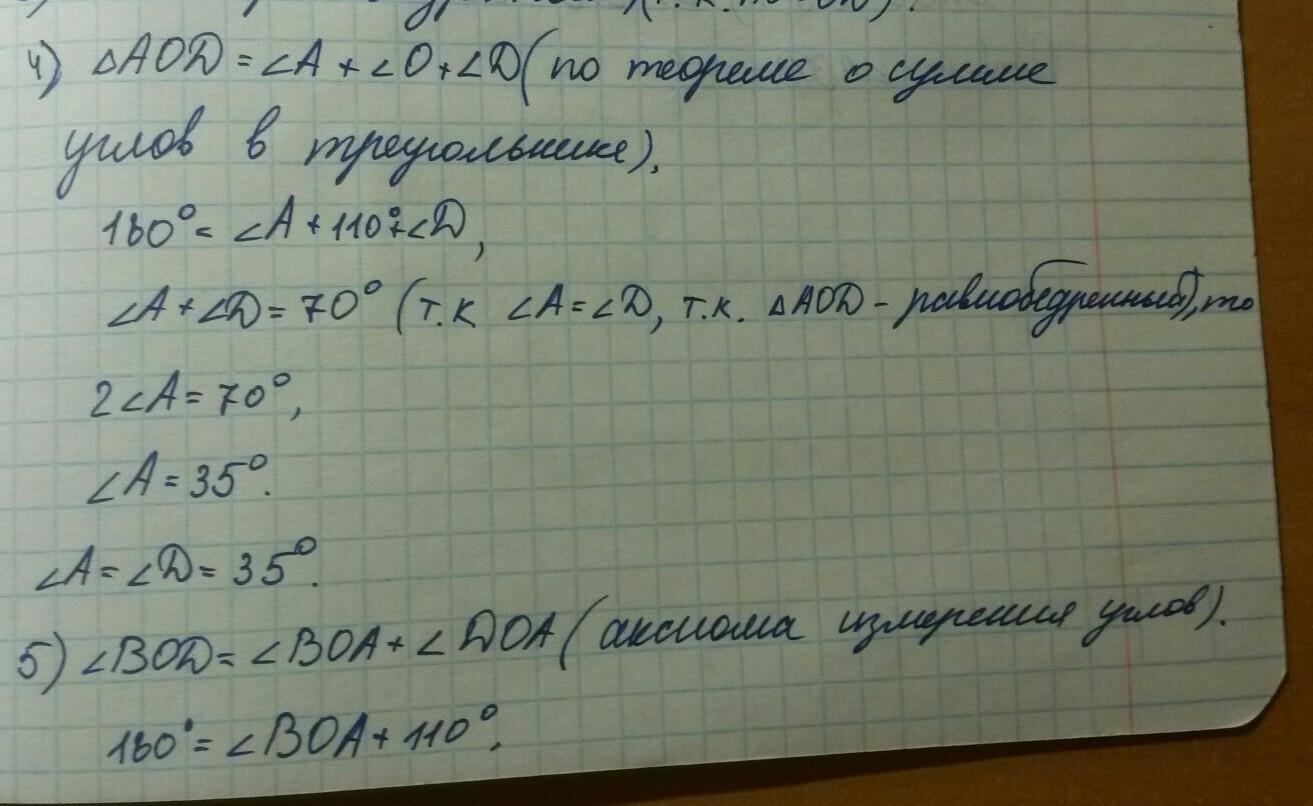 (т.к.
4) △AOD = ∠A + ∠O + ∠D (по теореме о сумме
углов в треугольнике),
180° = ∠A + 110° + ∠D,
∠A + ∠D = 70° (т.к ∠A = ∠D, т.к. △AOD - равнобедренный), то
2∠A = 70°,
∠A = 35°.
∠A = ∠D = 35°.
5) ∠BOD = ∠BOA + ∠DOA (аксиома измерения углов).
180° = ∠BOA + 110°.